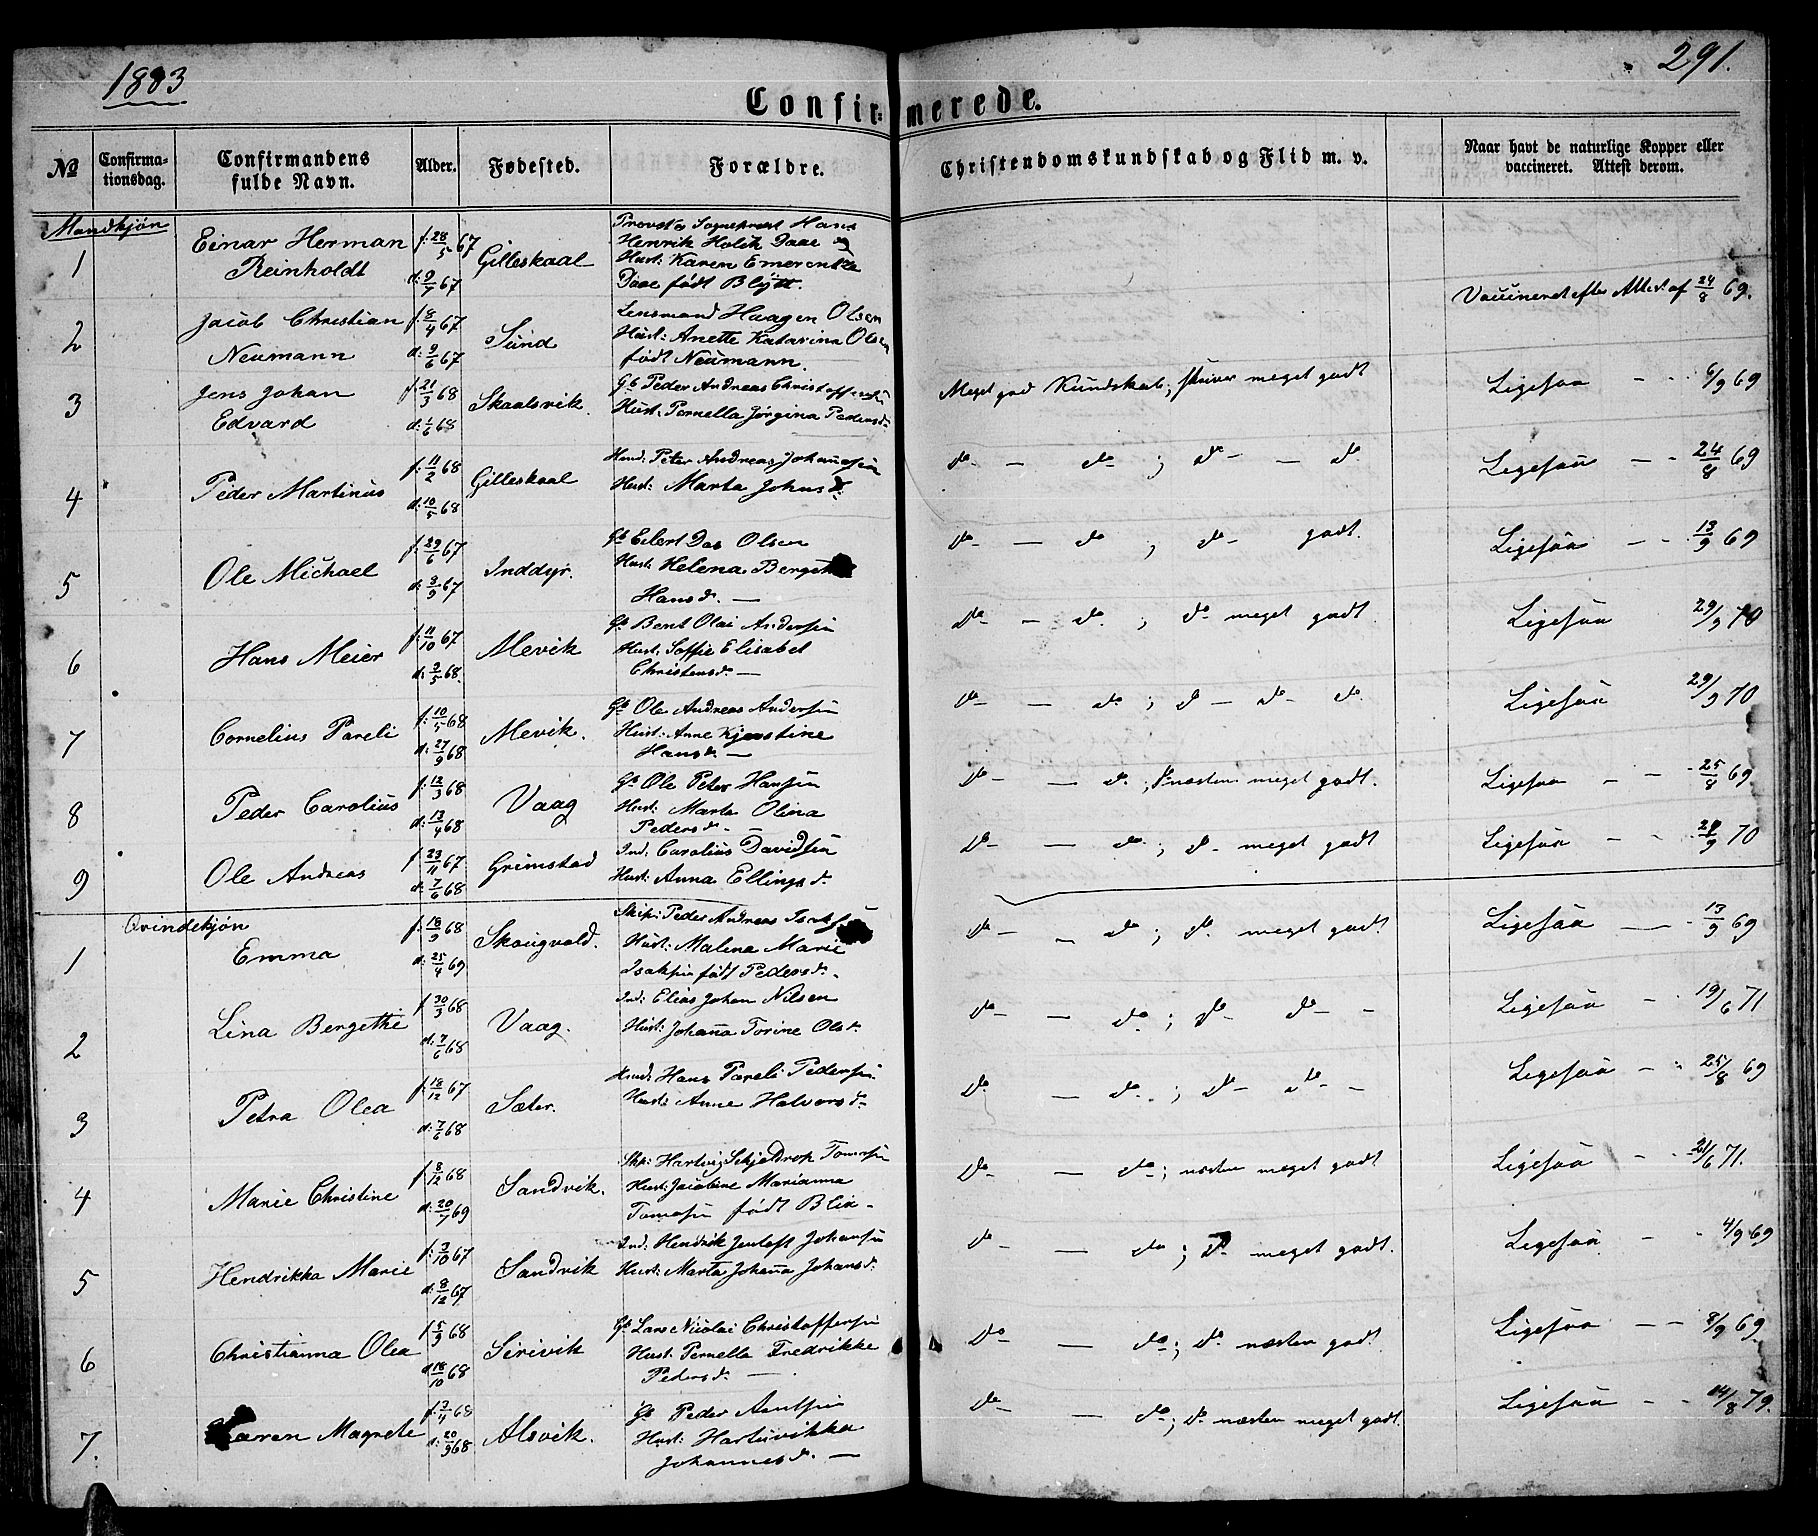 1883
291.
Confir= merede.
No
Confirma-
tionsdag.
Confirmandens
fulde Navn.
Alder.
Fødested.
Forældre.
Christendomskundskab og Flid m. v.
Naar havt de naturlige Kopper eller
vaccineret. Attest derom.
Mandkjøn
1 Einar Herman Reinholdt f. 28/5 67 d: 9/7 67 Gilleskaal
Provst & Sognepræst Hans
Henrik Holck Daae og
Hust: Karen Emerentze
Daae født Blytt.
Vaccineret efter Attest af 24/8 69.
2 Jacob Christian Neumann f. 8/4 67 d: 9/6 67 Sund
Lensmand Haagen Olsen
Hust: Anette Katarina Olsen
født Neumann.
3 Jens Johan Edvard f. 21/3 68 d: 1/6 68 Skaalsvik.
Gb Peder Andreas Christoffersen
Hust: Pernella Jørgina Pedersd.
Meget god Kundskab; skriver meget godt
Ligesaa - - 6/9 69
4 Peder Martinus f. 11/2 68 d: 10/5 68 Gilleskaal
Peter Andreas Johansen
Hust: Marta Johnsd.
do - do ; do - do
Ligesaa - - 24/8 69
5 Ole Michael f. 29/6 67 d: 3/9 67 Inddyr.
Gb Eilert Das Olsen
Hust: Helena
Hansd. -
do - do ; do - godt.
Ligesaa - - 13/9 69
6 Hans Meier f. 11/10 67 d: 3/5 68. Mevik
Gb Bent Olai Andersen
Hust: Soffie Elisabet
Christensd. -
do - do ; do meget godt.
Ligesaa 29/9 70
7 Cornelius Pareli f. 10/5 68 d: 27/9 68 Mevik.
Gb Ole Andreas Andersen
Hust: Anne Kjerstine
Hansd. -
do - do ; do - do - do.
Ligesaa 29/9 70
8 Peder Carolius f. 12/3 68 d: 13/4 68 Vaag
Gb Ole Peter Hansen
Hust: Marta Olina
Pedersd. -
do - do ; næsten meget godt.
Ligesaa - - 25/8 69
9 Ole Andreas f. 23/11 67. d: 7/6 68 Grimstad
Ind: Carolius Davidsen
Hust: Anna Ellingsd.
do - do ; do meget godt
Ligesaa - - 29/9 70
Qvindekjøn
1 Emma f. 18/9 68 d: 25/4 69 Skougvold.
Skip: Peder Andreas
Hust: Malena Marie
Isaksen født Pedersd.
do - do ; do meget godt
Ligesaa - 13/9 69
2 Lina Bergethe f. 30/3 68 d: 7/6 68 Vaag.
Ind: Elias Johan Nilsen
Hust: Johanna Torine Olsd.
do - do ; do do - -
Ligesaa - 19/6 71
3 Petra Olea f. 18/12 67 d: 7/6 68 Sæter.
Hans Pareli Pedersen
Hust: Anne Halvorsd.
do - do ; do - do -
Ligesaa - 25/8 69
4 Marie Christine f. 8/12 68 d: 20/7 69 Sandvik.
Skip: Hartvig Schjeldrop Tomesen
Hust: Jacobine Marianna
Tomesen født Blix -
do - do ; næsten meget godt
Ligesaa - - 21/6 71.
5 Hendrikka Marie f. 3/10 67 d: 8/12 67 Sandvik
Ind: Hendrik Jentoft Johansen
Hust: Marta Johana Johansd.
do - do ; do meget godt.
Ligesaa - - 4/9 69
6 Christianna Olea f. 5/9 68 d: 18/10 68 Sørvik
Gb Lars Nicolai Christoffersen
Hust: Pernella Fredrikke
Pedersd. -
do - do ; do næsten godt.
Ligesaa - - 8/9 69
7. Karen Magrete f. 3/4 68 d: 20/9 68 Alsvik.
Gb Peder
Hust:
Johannesd. -
do - do ; do næsten meget godt.
Ligesaa - - 14/8 79.